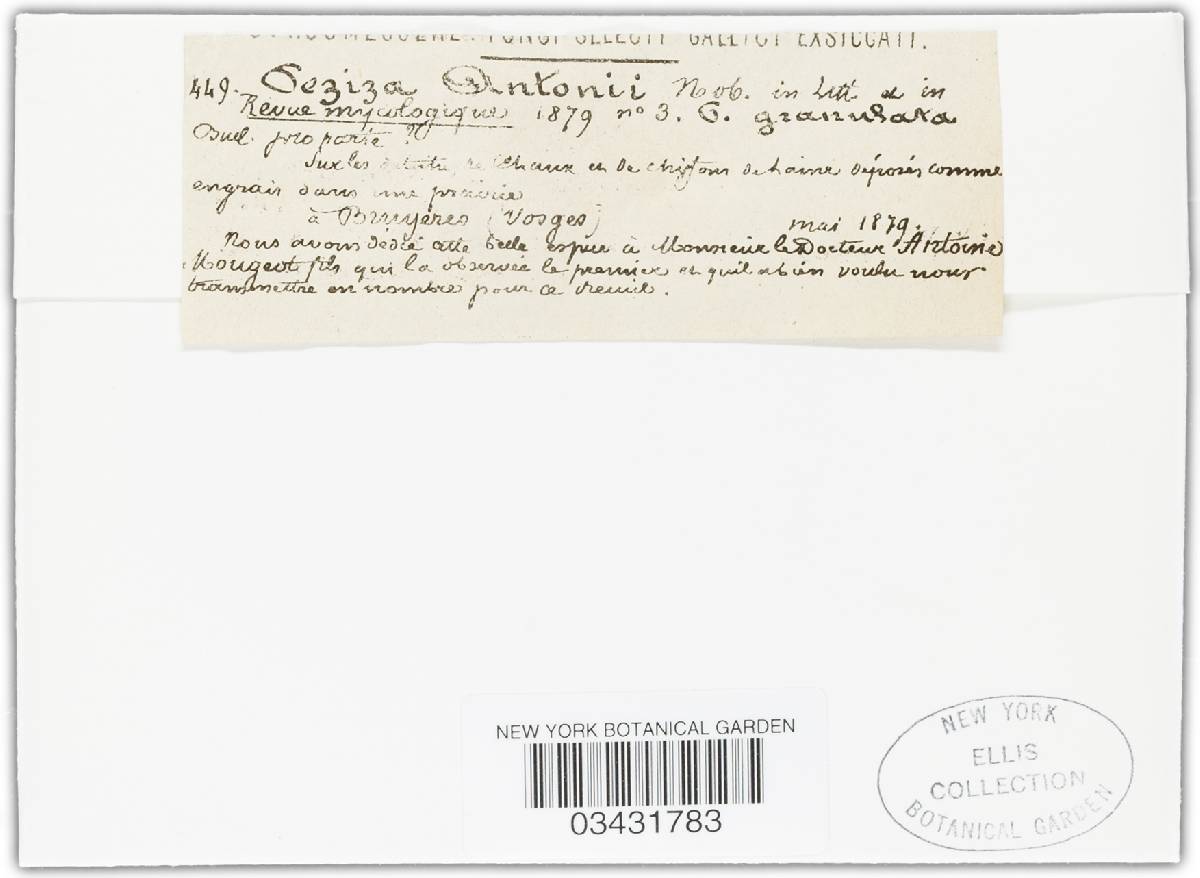 C. ROUMEGUÈRE. FUNGI SELECTI GALLICI EXSICCATI.
449. Peziza Antonii Nob. in Litt. et in
Revue mycologique 1879 no 3. P. granulata
Bull. pro parte ?
Sur les de chaux et de chiffons de laine déposés comme
engrais dans une prairie
à Bruyères (Vosges) mai 1879.
Nous avons dédié cette belle espèce à Monsieur le Docteur Antoine
Mougeot fils qui l'a observée le premier et qui a bien voulu nous
transmettre en nombre pour ce
NEW YORK BOTANICAL GARDEN
03431783
NEW YORK
ELLIS
COLLECTION
BOTANICAL GARDEN